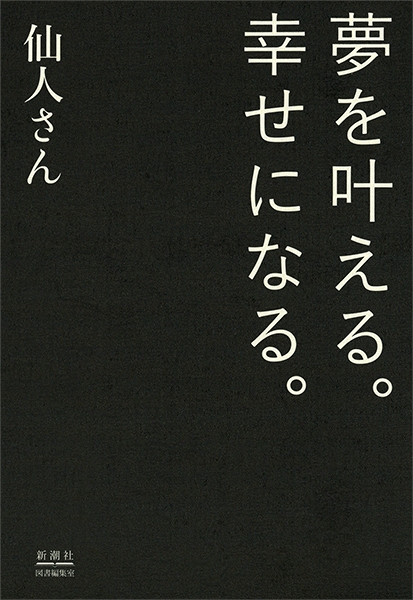 夢を叶える。
幸せになる。
仙人さん
新潮社
図書編集室